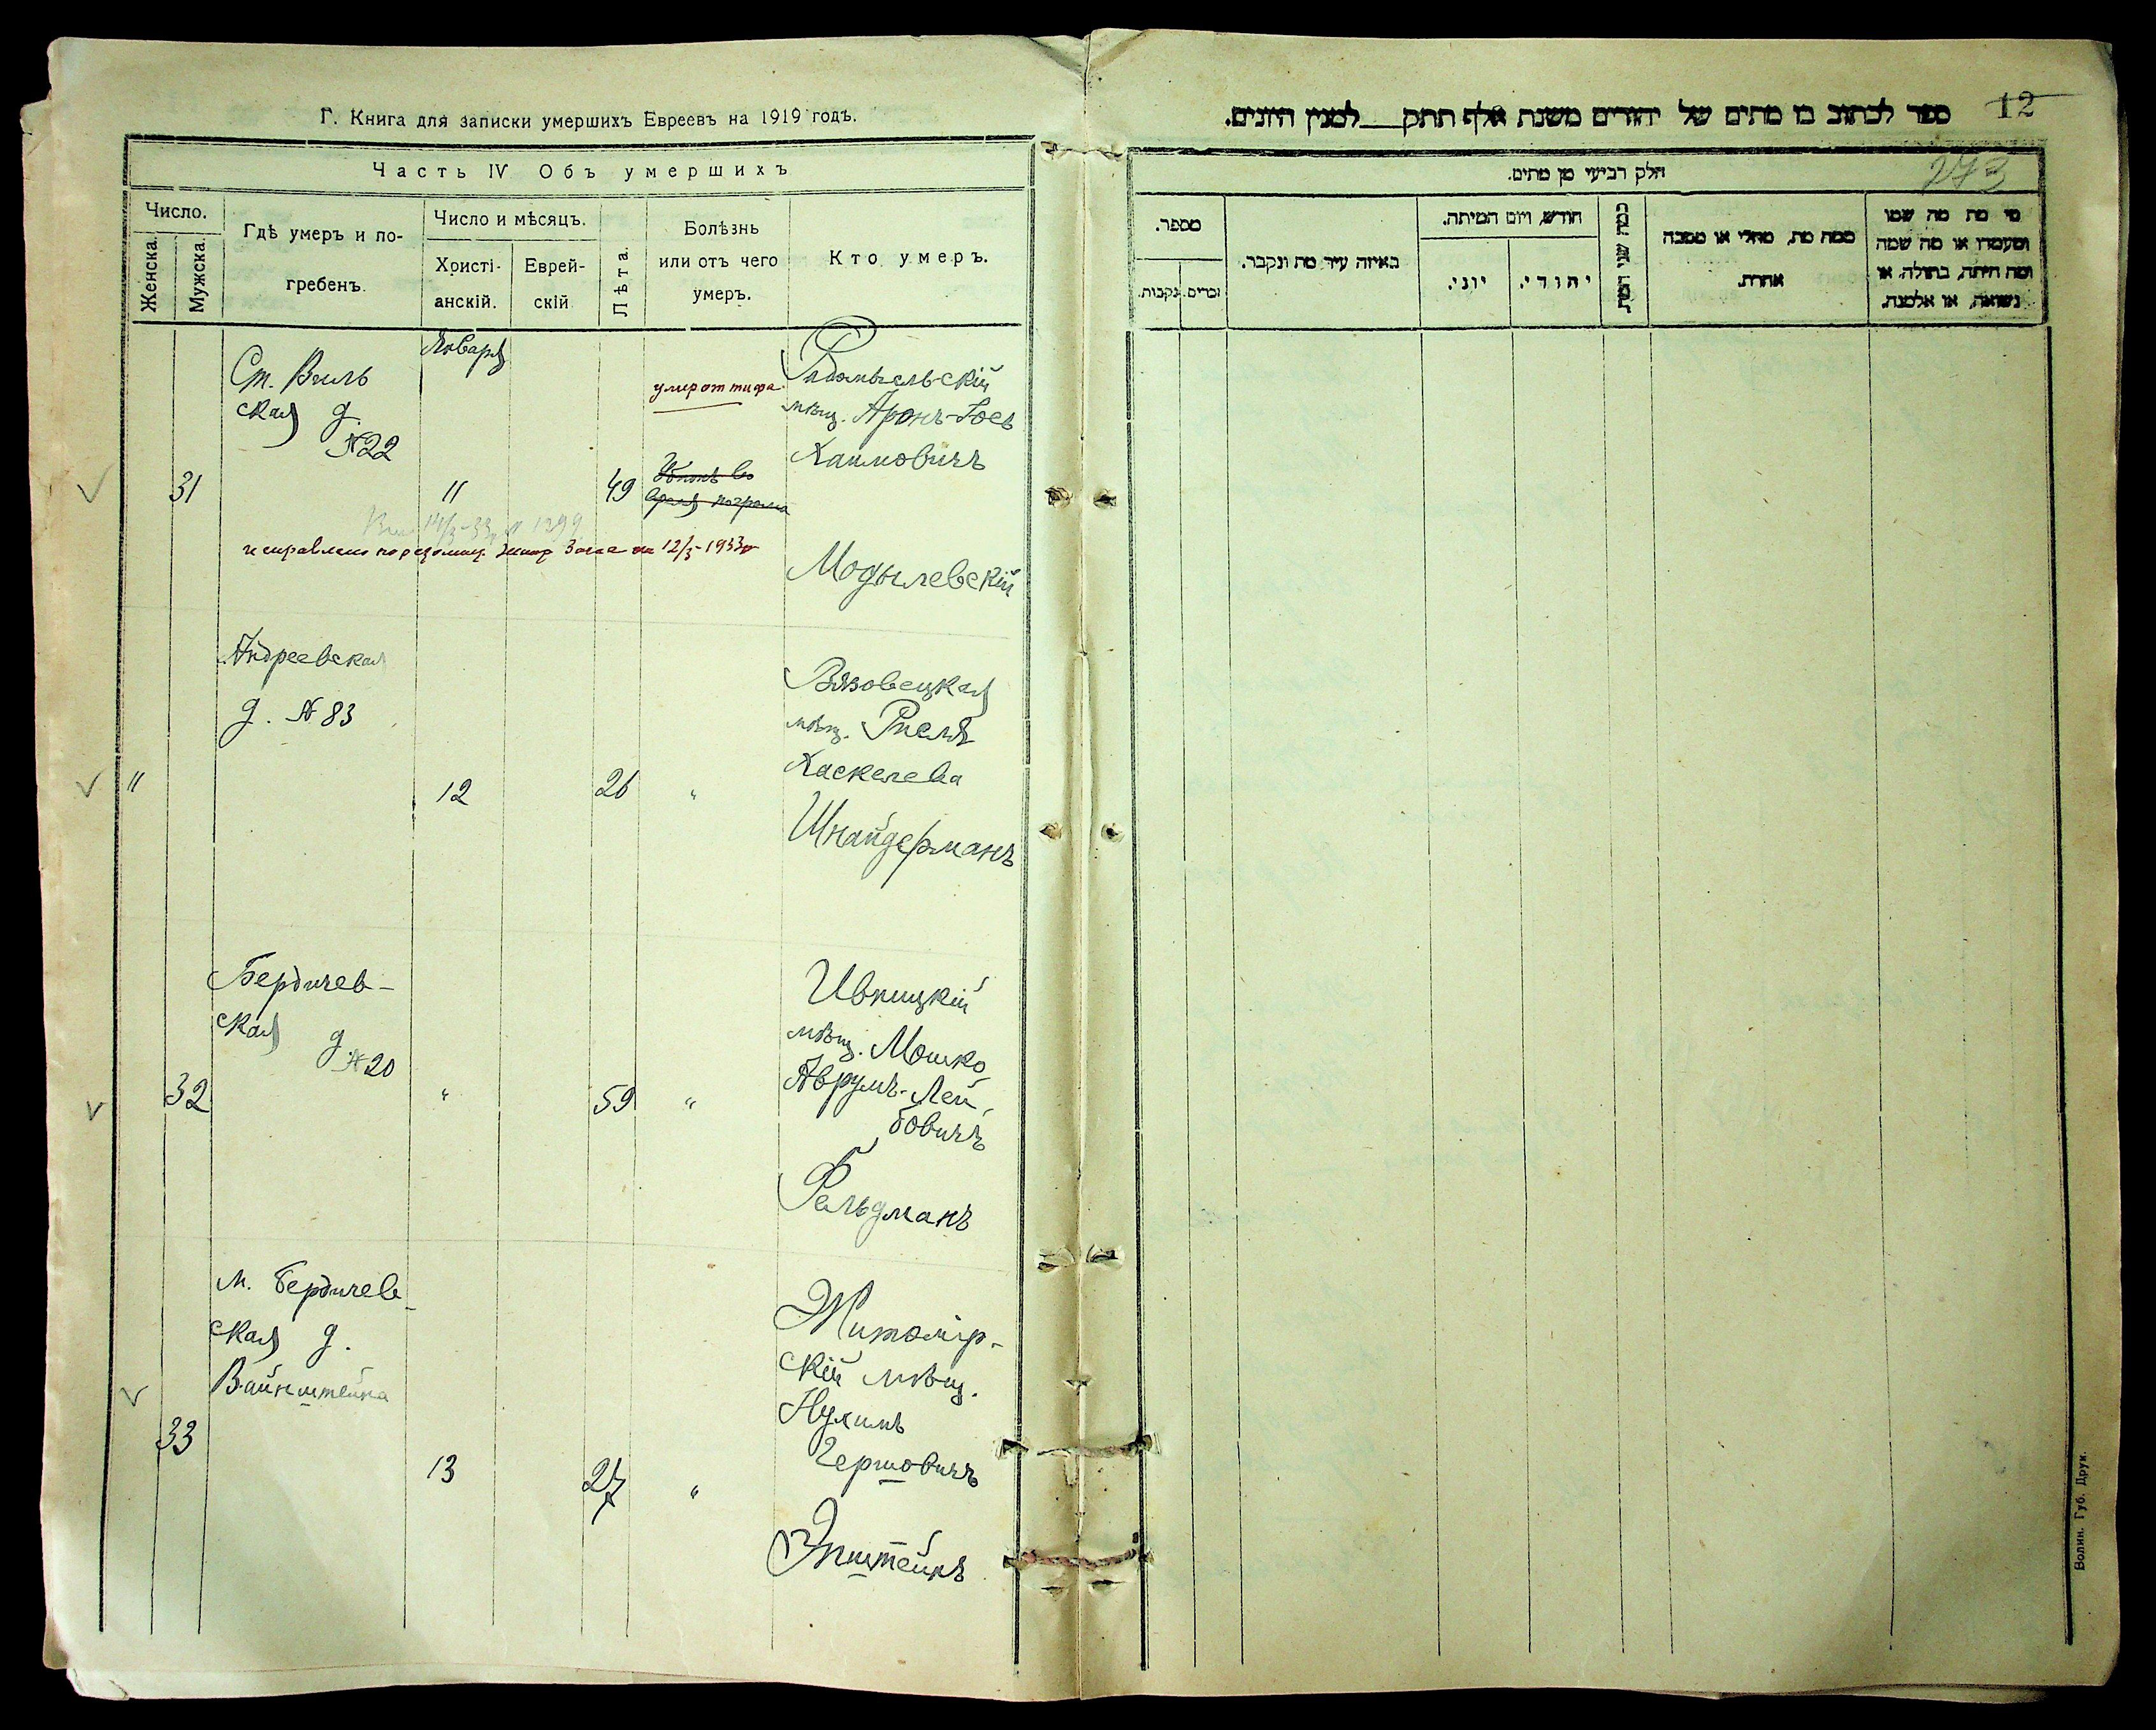 Г. Книга для записки умершихъ Евреевъ на 1919 годъ.
Часть IV Объ умершихъ
Число.
Женска.
Мужска.
Гдѣ умеръ и по-
гребенъ.
Число и мѣсяцъ.
Христі-
анскій.
Еврей-
скій
Лѣта.
Болѣзнь
или отъ чего
умеръ.
Кто умеръ.
Января
Ст. Виль
ская д.
№ 22
31
11
49
умер от тифа
Убитъ во
время погрома
мѣщ. Аронъ-Іос
Хаимовичъ
Модылевскій
14/3-33 № 1299
исправлено по 12/3-1933 г
Андреевская
д. № 83
"
12
26
"
Вязовецкая
мѣщ. Рисля
Хаскелева
Шнайдерманъ
Бердичев-
ская д.
№ 20
32
"
59
"
Ивницкій
мѣщ. Мошко
Аврумъ-Лей-
бовичъ
Фельдманъ
М. Бердичев-
ская д.
Вайнштейна
33
13
27
"
Житомір-
скій мѣщ.
Нухимъ
Гершовичъ
Эпштейнъ
ספר לכתוב בו מתים של יהודים משנת אלף תתק למנין היונים.
12
273
חלק רביעי מן מתים.
מספר.
זכרים.
נקבות.
באיזה עיר מת ונקבר.
חודש, ויום המיתה.
יוני.
יהודי.
כמה שני המת
ממה מת, מחלי או מסבה
אחרת.
מי מת מה שמו
ומעמדו או מה שמה
ומה היתה, בתולה, או
נשואה, או אלמנה.
Волин. Губ. Друк.